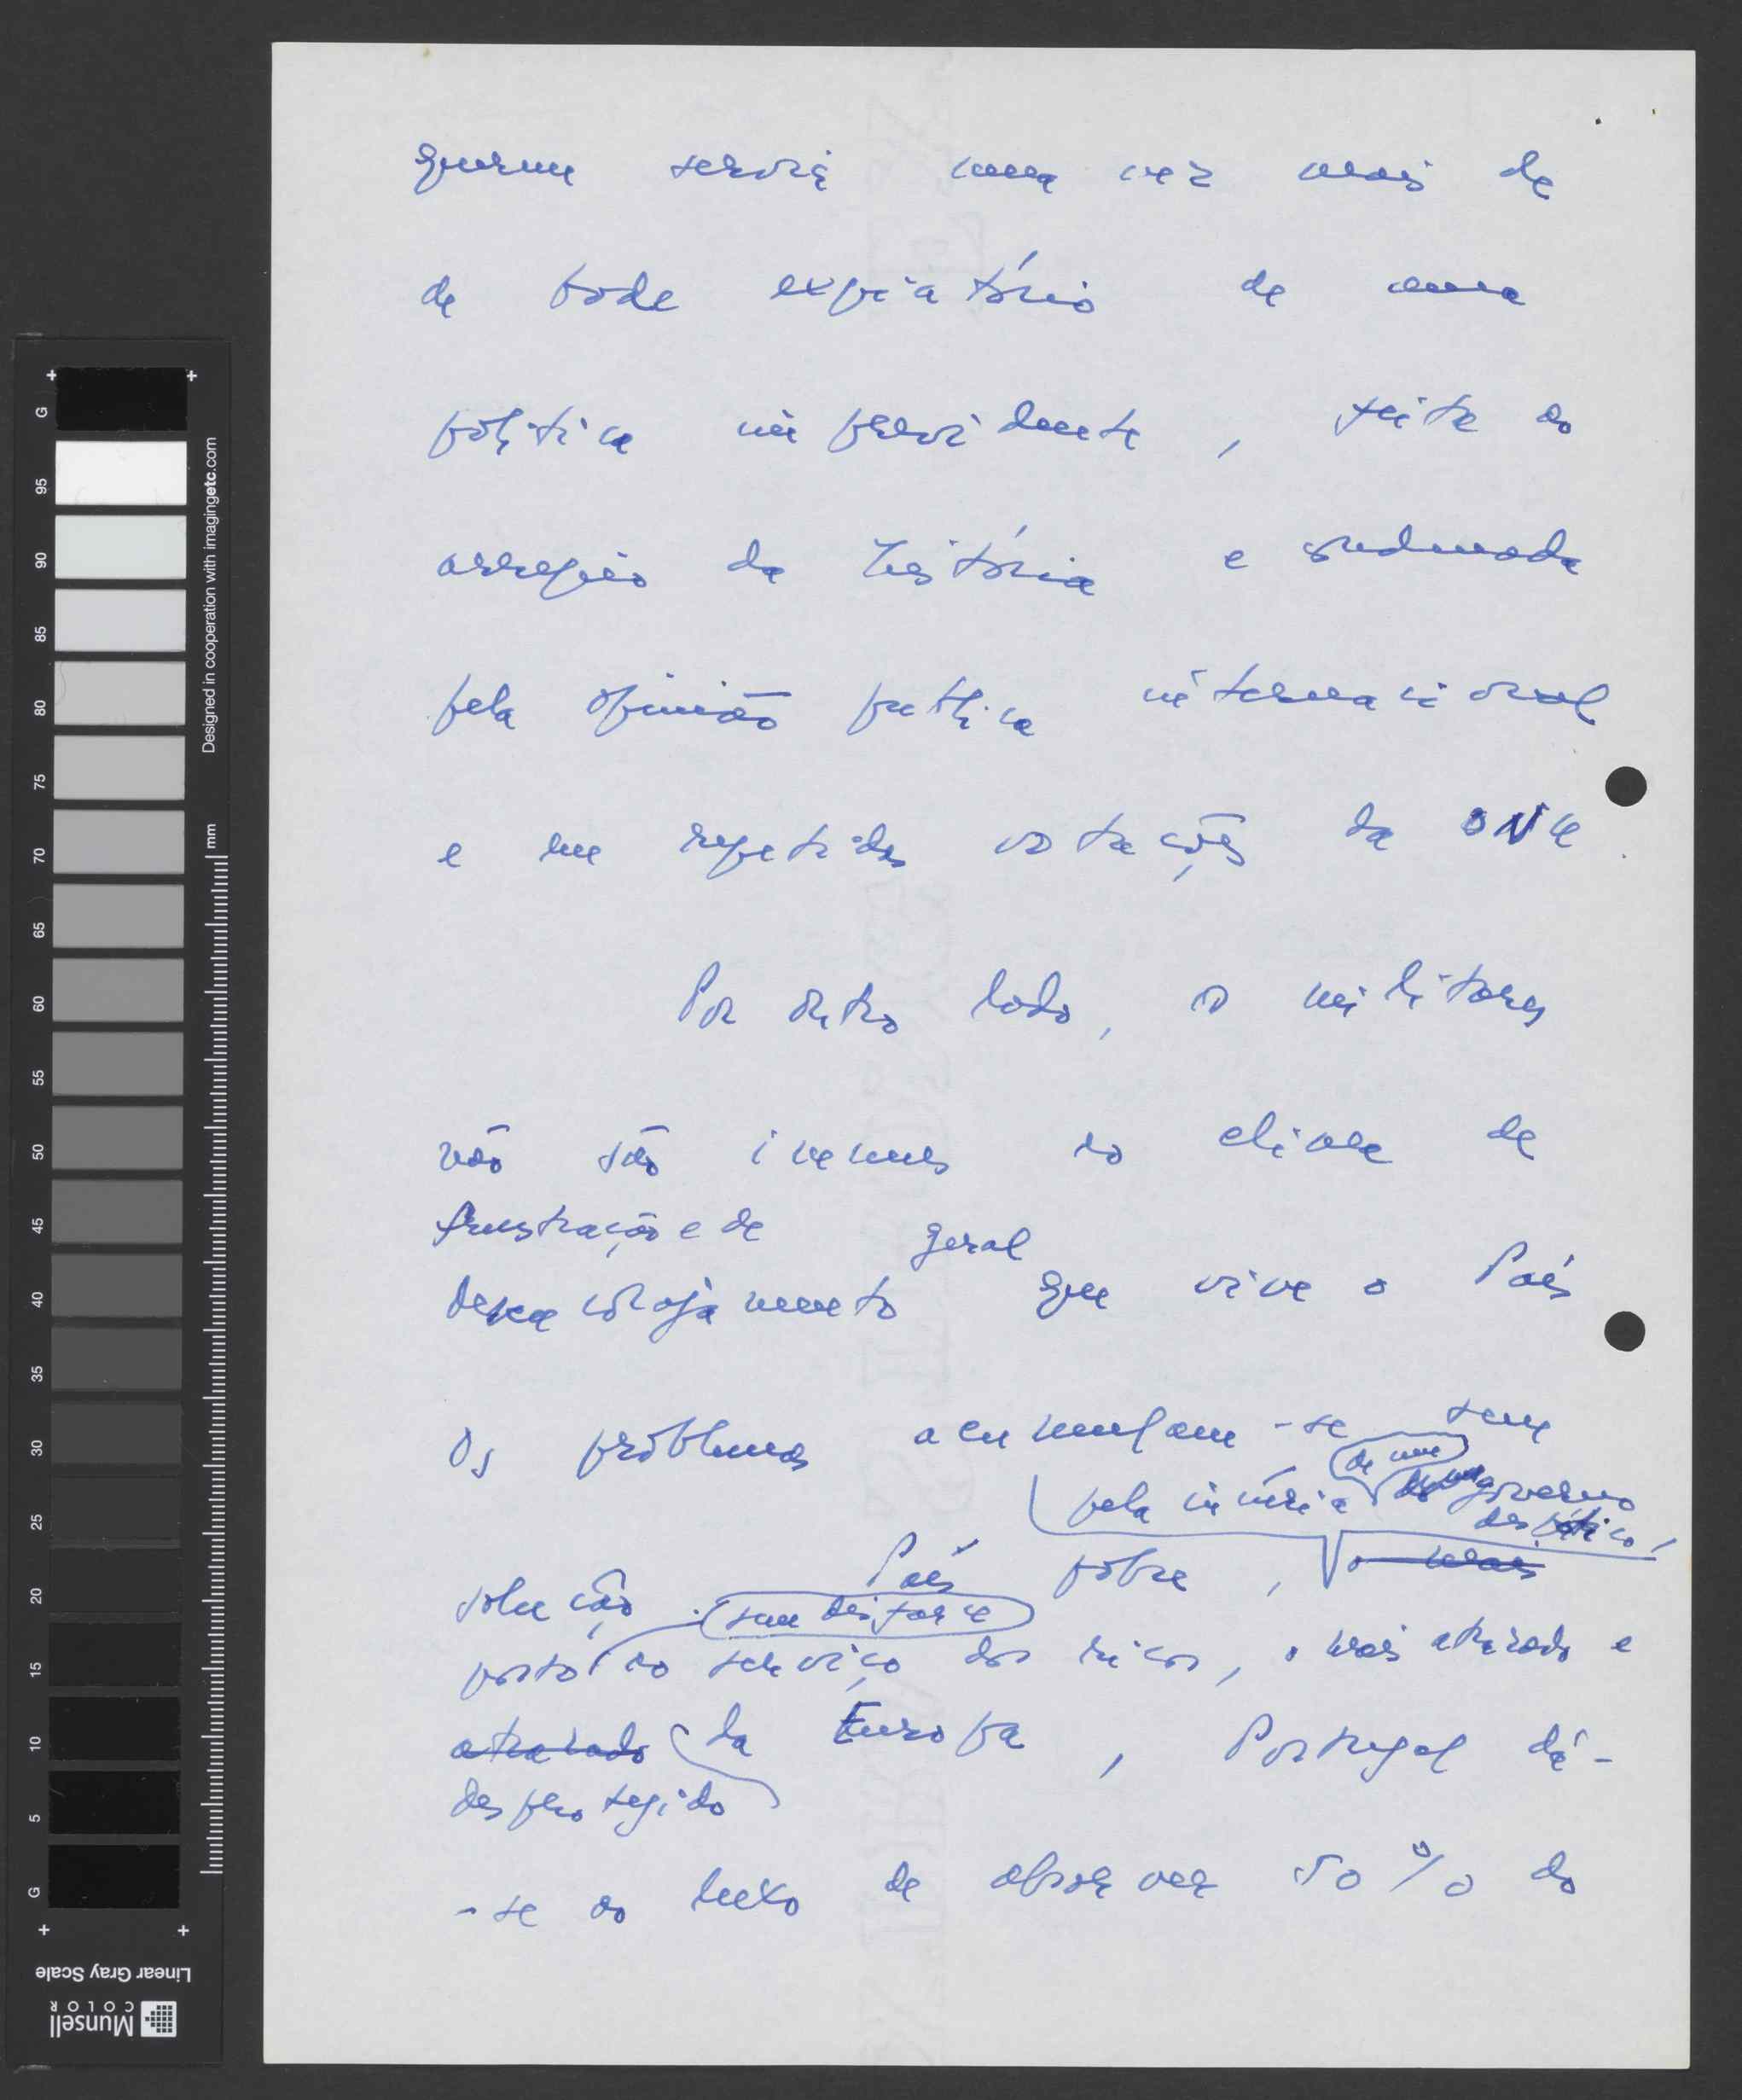 querem servir uma vez mais de
de bode expiatório de uma
política imprevidente, feita ao
arrepio da história e condenada
pela opinião publica internacional
e em repetidas votações da ONU.
Por outro lado, os militares
não são imunes ao clima de
frustração e de geral
desencorajamento que vive o País
Os problemas acumulam-se sem
pela incúria de um governo
despótico,
solução. País pobre, o mais
sem disfarce
posto ao serviço dos ricos, o mais atrasado e
atrasado da Europa, Portugal dá-
desprotegido
-se ao luxo de absorver 50% do
G 95 90 85 80 75 70 65 60 55 50 45 40 35 30 25 20 15 10 5 G
Designed in cooperation with imagingetc.com
mm
Linear Gray Scale
Munsell
COLOR